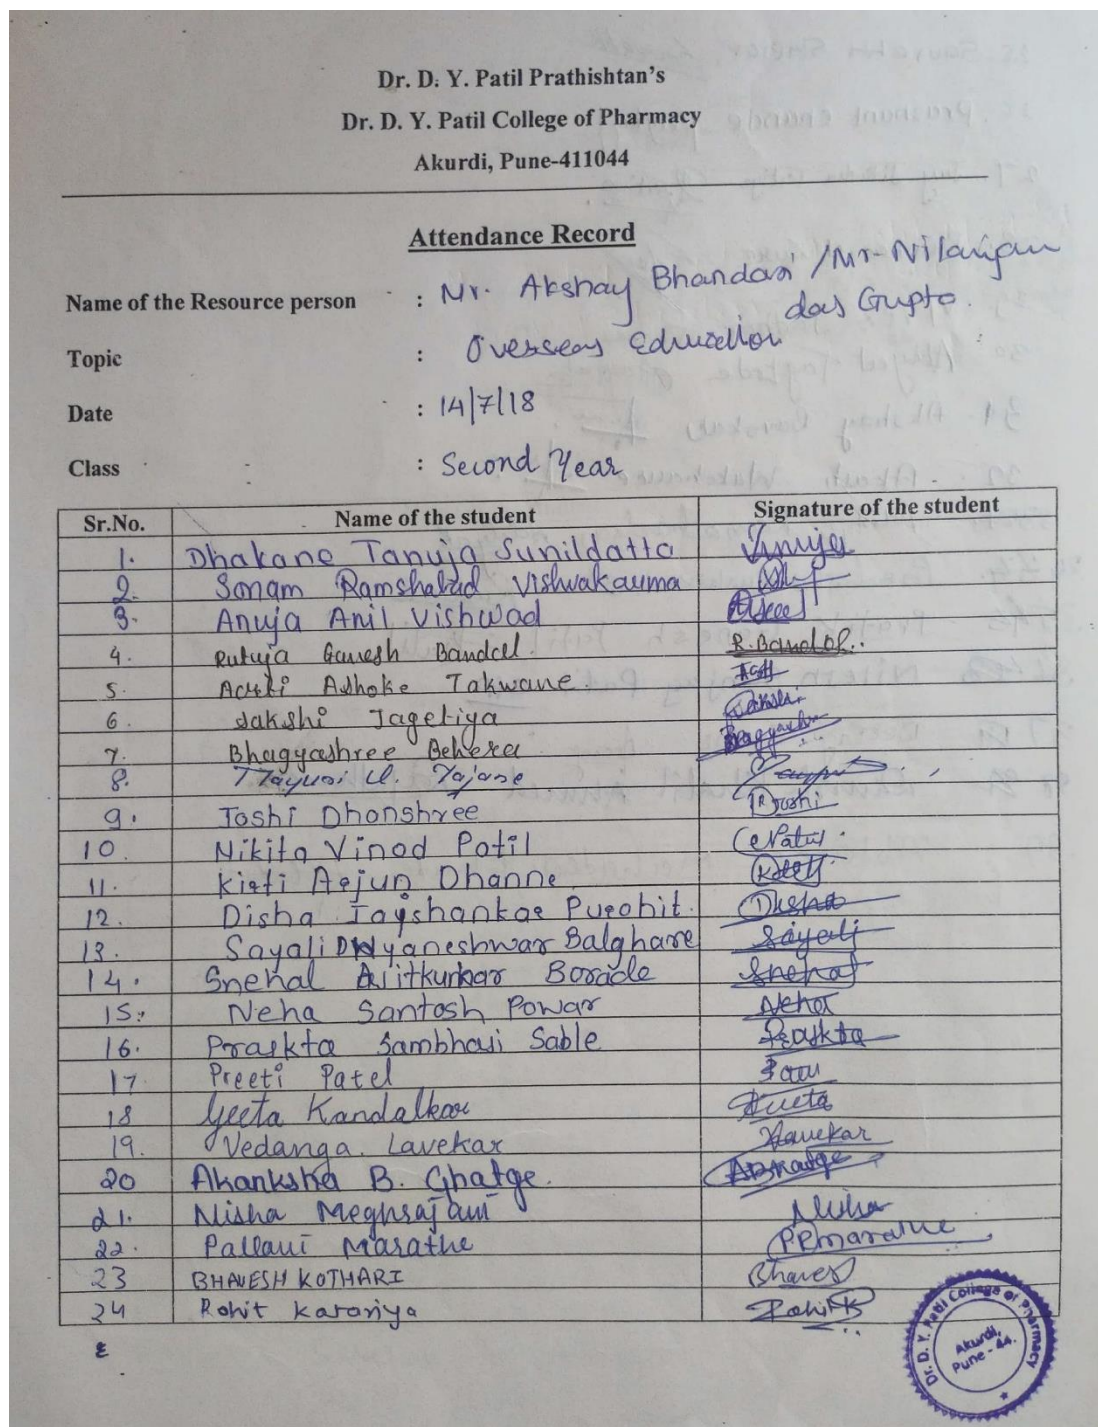 Dr. D. Y. Patil Prathishtan's
Dr. D. Y. Patil College of Pharmacy
Akurdi, Pune-411044
Attendance Record
Name of the Resource person : Mr. Akshay Bhandari / Mr. Nilanjan
das Gupta.
Topic : Overseas Education
Date : 14/7/18
Class : Second Year
Sr.No. Name of the student Signature of the student
1. Dhakane Tanuja Sunildatta Tanuja
2. Sonam Ramshabad Vishwakarma
3. Anuja Anil Vishwad
4. Rutuja Ganesh Bandal R. Bandal.
5. Aarti Ashoke Takwane.
6. Sakshi Jagetiya Sakshi
7. Bhagyashree Behera Bhagyashree
8. Mayuri U.
9. Joshi Dhanshree Joshi
10. Nikita Vinod Patil NPatil
11. Kirti Arjun Dhanne Kirti
12. Disha Jayshankar Purohit. Disha
13. Sayali Dnyaneshwar Balghare Sayali
14. Snehal Ajitkumar Borade Snehal
15. Neha Santosh Powar Neha
16. Praskta Sambhaji Sable Praskta
17 Preeti Patel
18 Geeta Kandalkar Geeta
19. Vedanga. Lavekar Lavekar
20 Akanksha B. Ghatge. ABGhatge
21. Nisha Meghrajani Nisha
22. Pallavi Marathe PPmarathe
23 BHAVESH KOTHARI Bhavesh
24 Rohit Karariya Rohit K
Dr. D. Y. Patil College of Pharmacy
Akurdi,
Pune - 44.